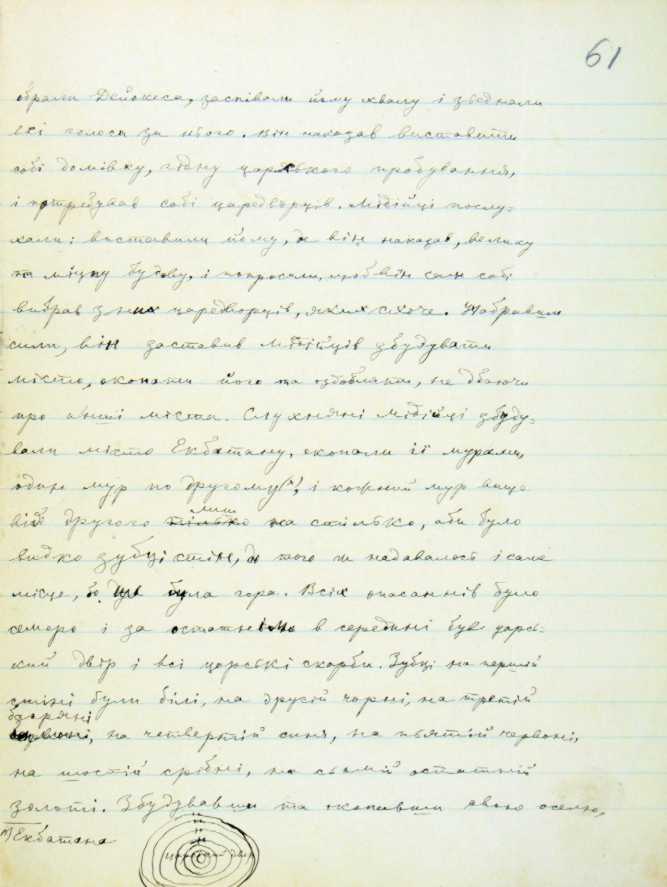 61
обрали Дейокеса, заспівали йому хвалу і зʼєднали
всі голоси за нього. Він наказав виставити
собі домівку, гідну царського пробування,
і потрібував собі царедворців. Мідійці послу-
хали: виставили йому, де він наказав, велику
та міцну будову, і попросили, щоб він сам собі
вибрав з них царедворців, яких схоче. Набравши
сили, він заставив мідійців збудувати
місто, окопати його та оздобляти, не дбаючи
про инші міста. Слухняні мідійці збуду-
вали місто Екбатану, окопали її мурами,
один мур по другому *), і кожний мур вище
від другого тілько лиш на стілько, аби було
видко зубці стін, до того ж надавалось і саме
місце, бо це була гора. Всіх опасаннів було
семеро і за останнімо в середині був царсь-
кий двір і всі царські скарби. Зубці на першій
стіні були білі, на другій чорні, на третій
багряні
червоні, на четвертій сині, на пʼятій червоні,
на шостій срібні, на сьомій остатній
золоті. Збудувавши та окопавши свою оселю,
*) Екбатана
царський двір